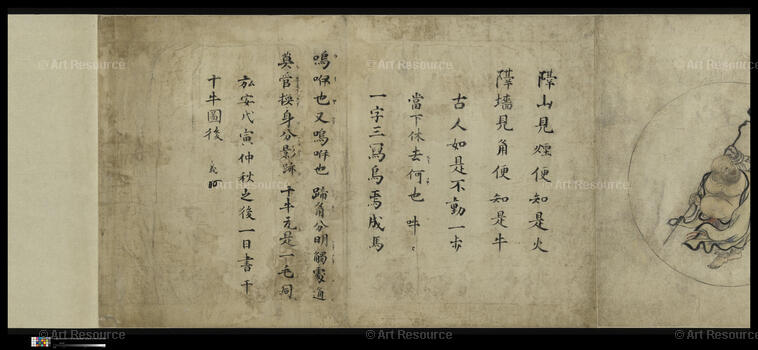 隔山見煙便知是火
隔墻見角便知是牛
古人如是不動一步
當下休去何也 吽々
一字三寫烏焉成馬
嗚咿也又嗚咿也 蹄角分明觸處通
莫管換身分影跡 十牛元是一毛同
弘安戊寅仲秋之後一日書于
十牛圖後
© Art Resource
© Art Resource
© Art Resource
© Art Resource
© Art Resource
© Art Resource
© Art Resource
© Art Resource
© Art Resource